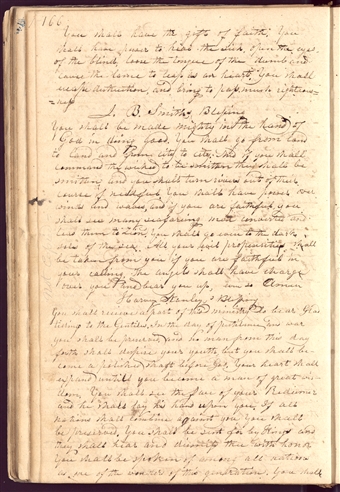 166
You shall have the gift of faith; You
shall have power to heal the sick, open the eyes
of the blind, loose the tongue of the dumb and
cause the lame to leap as an heart, You shall
escape distruction, and bring to pass much righteous-
ness
J. B. Smith's Blessing
You shall be made mighty in the hand of
God in doing good, You shall go from land
to land and from city to city, and if you shall
command the to be smitten they shall be
smitten, and you shall turn rivers out of their
course if needful. You shall have power over
winds and waves, and if you are faithful, you
shall see many seafaring men converted and
lead them to Zion, you shall go even to the
of the sea. All your shall
be taken from you if you are faithful in
your calling, the angels shall have charge
over you and bear you up, even so Amen
Harvey Stanley's Blessing
You shall receive a part of the ministry to bear glad
tidings to the Gentiles. In the day of pestilence and war
you shall be preserved and no man from this day
forth shall despise your youth, but you shall be-
come a polished shaft before God, Your heart shall
expand until you become a man of great wis-
dom, You shall see the face of your Redeemer
and he shall lay his hand upon you, If all
nations shall combine against you you shall
be preserved, You shall be sent for by Kings and
they shall hear and dismiss thee with honor
You shall be spoken of among all nations
as one of the wonders of this generation, You shall